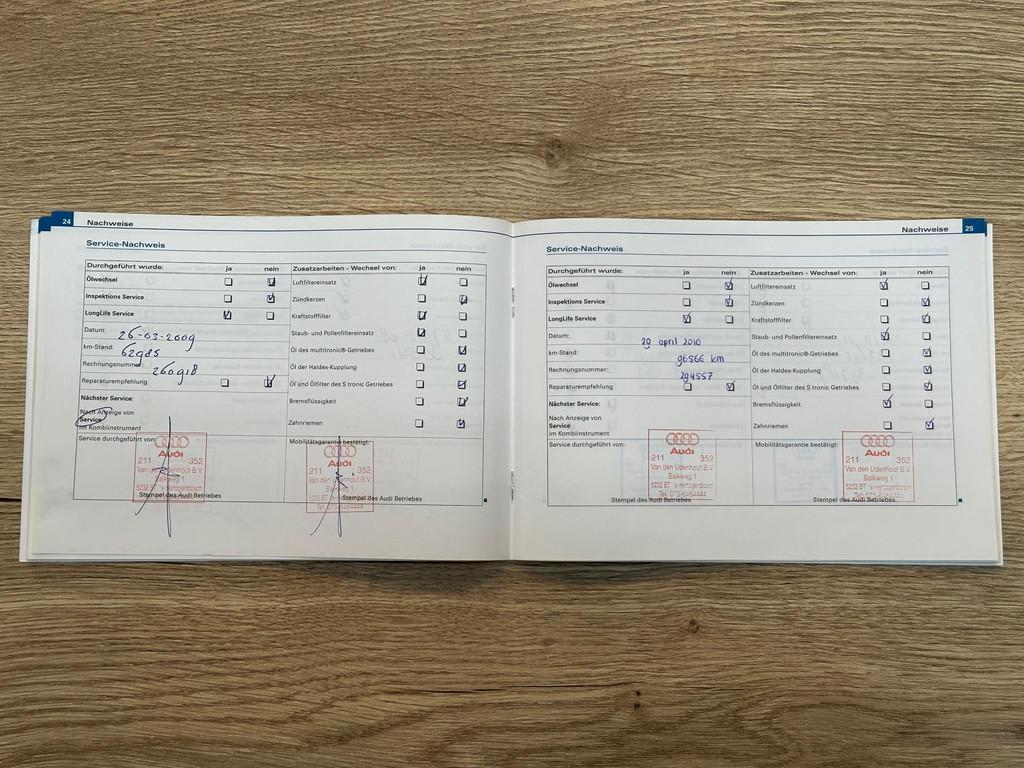 24 Nachweise
Service-Nachweis
Durchgeführt wurde: ja nein
Ölwechsel
Inspektions Service
LongLife Service
Datum: 26-03-2009
km-Stand: 62985
Rechnungsnummer: 260918
Reparaturempfehlung
Nächster Service:
Nach Anzeige von
Service
im Kombiinstrument
Zusatzarbeiten - Wechsel von: ja nein
Luftfiltereinsatz
Zündkerzen
Kraftstofffilter
Staub- und Pollenfiltereinsatz
Öl des multitronic®-Getriebes
Öl der Haldex-Kupplung
Öl und Ölfilter des S tronic Getriebes
Bremsflüssigkeit
Zahnriemen
Service durchgeführt von:
Audi
211 352
Van den Udenhout B.V.
Balkweg 1
5232 BT 's-Hertogenbosch
Stempel des Audi Betriebes
Mobilitätsgarantie bestätigt:
Audi
211 352
Van den Udenhout B.V.
Balkweg 1
5232 BT 's-Hertogenbosch
Tel. 073-6464444
Stempel des Audi Betriebes
Nachweise 25
Service-Nachweis
Durchgeführt wurde: ja nein
Ölwechsel
Inspektions Service
LongLife Service
Datum: 29 april 2010
km-Stand: 96566 km
Rechnungsnummer: 294557
Reparaturempfehlung
Nächster Service:
Nach Anzeige von
Service
im Kombiinstrument
Zusatzarbeiten - Wechsel von: ja nein
Luftfiltereinsatz
Zündkerzen
Kraftstofffilter
Staub- und Pollenfiltereinsatz
Öl des multitronic®-Getriebes
Öl der Haldex-Kupplung
Öl und Ölfilter des S tronic Getriebes
Bremsflüssigkeit
Zahnriemen
Service durchgeführt von:
Audi
211 352
Van den Udenhout B.V.
Balkweg 1
5232 BT 's-Hertogenbosch
Tel. 073-6464444
Stempel des Audi Betriebes
Mobilitätsgarantie bestätigt:
Audi
211 352
Van den Udenhout B.V.
Balkweg 1
5232 BT 's-Hertogenbosch
Tel. 073-6464444
Stempel des Audi Betriebes